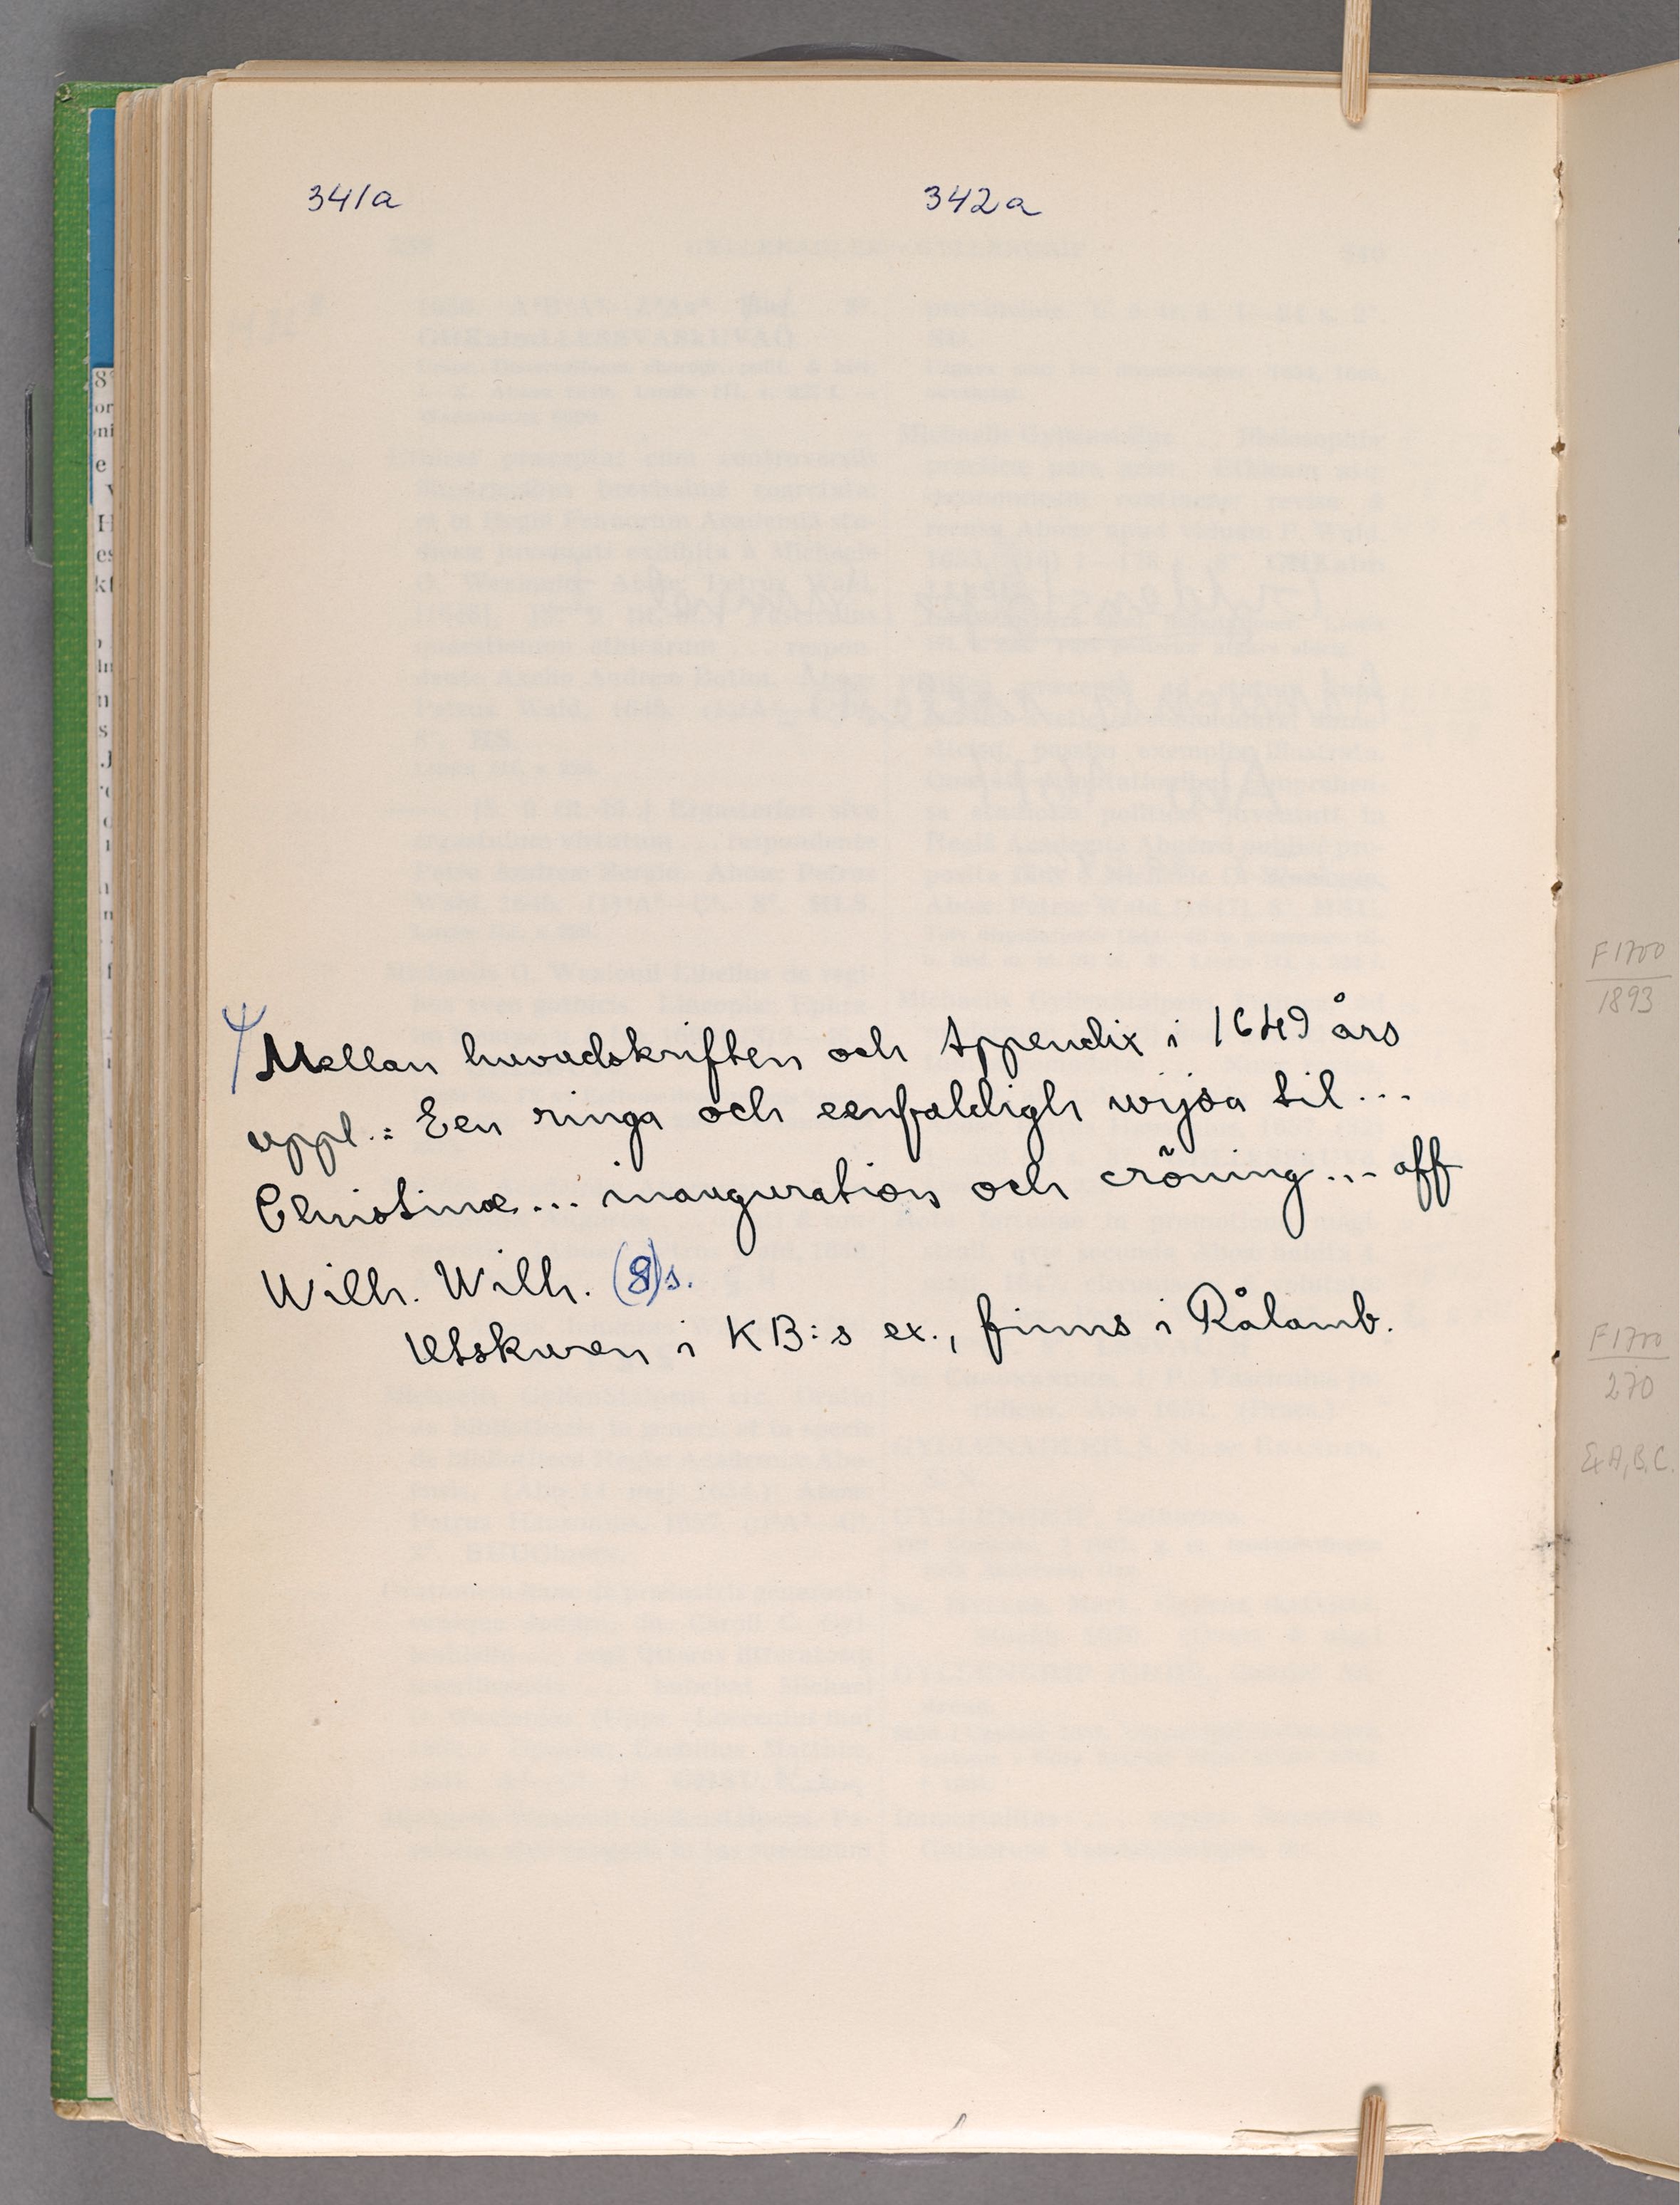 341a 342a
Mellan huvudskriften och Appendix i 1649 års
uppl.: Een ringa och eenfaldigh wijsa til...
Christinæ... inauguration och cröning... aff
Wilh. Wilh. (8)s.
Utskuren i KB:s ex., finns i Rålamb.
F1700
1893
F1700
270
& A,B,C.